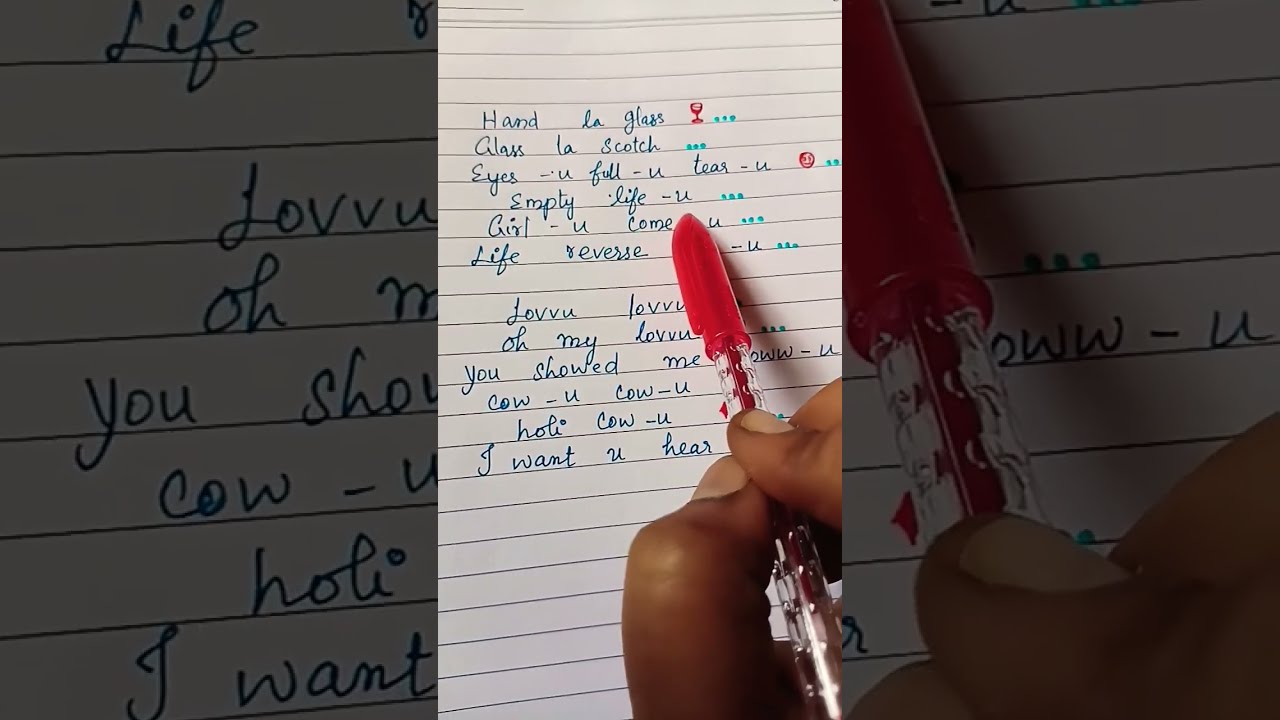 Hand la glass ...
Glass la scotch ...
Eyes -u full -u tear -u ...
Empty life -u ...
Girl -u come u ...
Life reverse -u ...
Lovvu lovvu
oh my lovvu ...
You showed me oww -u
cow -u cow -u
holi cow -u
I want u hear